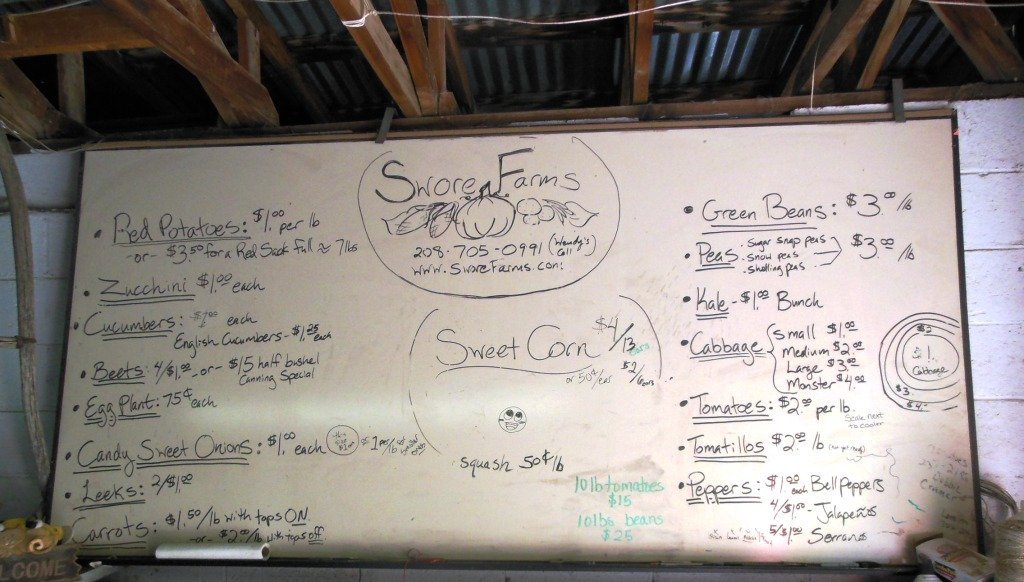 Swore Farms
208-705-0991 (Wendy's Cell)
www.SworeFarms.com
• Red Potatoes: $1.00 per lb
-or- $3.50 for a Red Sack Full ≈ 7lbs
• Zucchini $1.00 each
• Cucumbers: $1.00 each
English Cucumbers - $1.25 each
• Beets: 4/$1.00 -or- $15 half bushel
Canning Special
• Egg Plant: 75¢ each
• Candy Sweet Onions: $1.00 each
this size $1.00
$1 per/lb
• Leeks: 2/$1.00
Carrots: $1.50/lb with tops ON
-or- $2.00/lb with tops off
Sweet Corn $4/13 ears
or 50¢/ear $2/6ears
squash 50¢ lb
10lb tomatoes
$15
10lbs beans
$25
• Green Beans: $3.00/lb
• Peas • Sugar snap peas
• snow peas
• shelling peas
$3.00/lb
• Kale - $1.00 Bunch
• Cabbage { Small $1.00
Medium $2.00
Large $3.00
Monster $4.00
$2
$1.
Cabbage
$3
$4
• Tomatoes: $2.00 per lb
Scale next
to cooler
• Tomatillos $2.00 lb
• Peppers: $1.00 each Bell Peppers
4/$1.00 - Jalapeños
5/$1.00 Serranos
LCOME